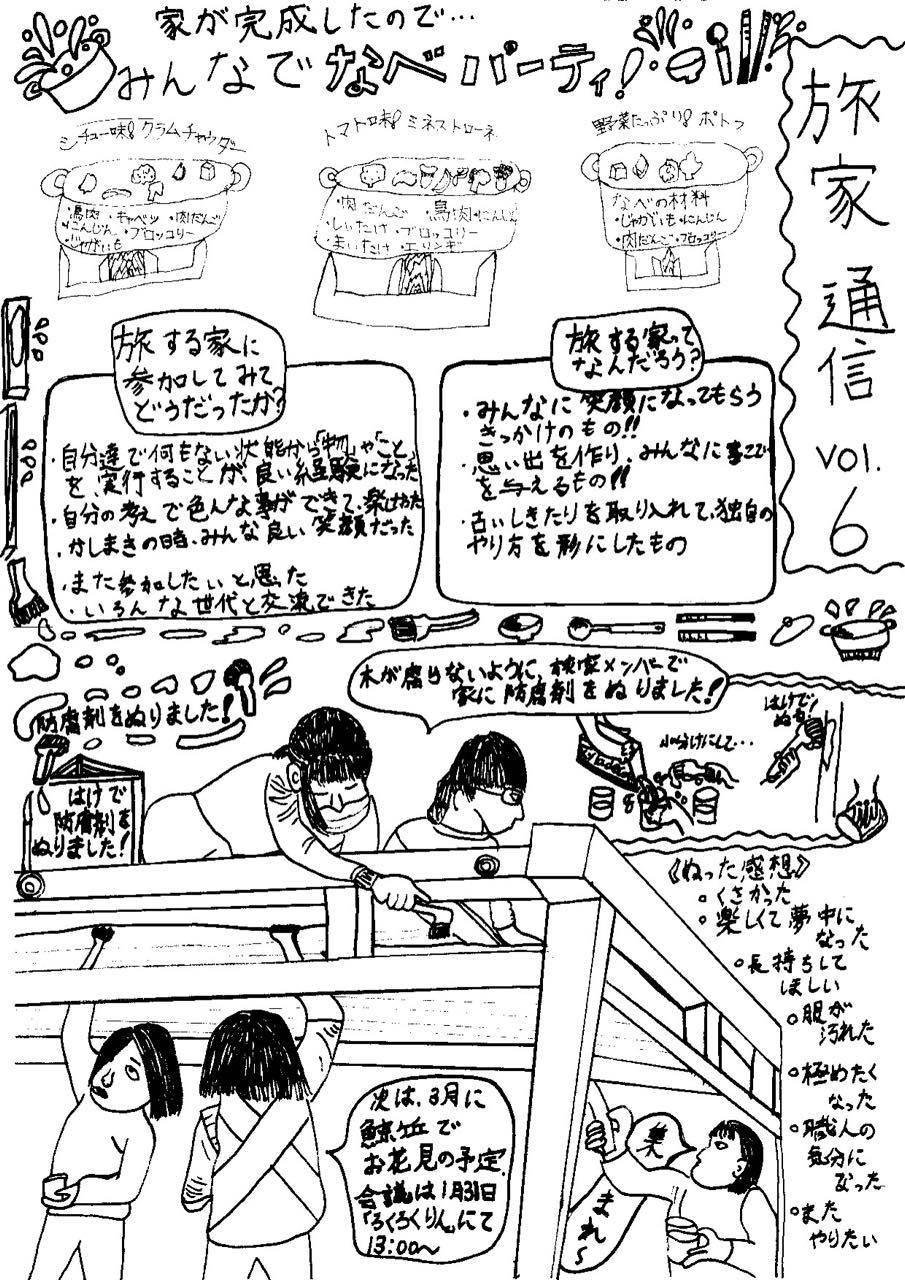 家が完成したので…
みんなでなべパーティ!
旅家通信 VOl.6
シチュー味!クラムチャウダー
・鳥肉・キャベツ・肉だんご
・にんじん・ブロッコリー
・じゃがいも
トマトロ味!ミネストローネ
・肉だんご・鳥肉・にんじん
・しいたけ・ブロッコリー
・まいたけ・エリンギ
野菜たっぷり!ポトフ
なべの材料
・じゃがいも・にんじん
・肉だんご・ブロッコリー
旅する家って
なんだろう?
・みんなに笑顔になってもらう
きっかけのもの!!
・思い出を作り、みんなに
を与えるもの!!
・古いしきたりを取り入れて、独自の
やり方を形にしたもの
旅する家に
参加してみて
どうだったか?
・自分達で何もない状態から「物」や「こと」
を実行することが、良い経験になった
・自分の考えで色んな事ができて、楽しかった
・かしまきの時、みんな良い笑顔だった
・また参加したいと思った
・いろんな世代と交流できた
防腐剤をぬりました!
木が腐らないように、検家メンバーで
家に防腐剤をぬりました!
小分けにして…
はけで
ぬる
はけで
防腐剤を
ぬりました!
《ぬった感想》
○くさかった
○楽しくて夢中に
なった
○長持ちして
ほしい
○服が
汚れた
○極めたく
なった
○職人の
気分に
なった
○また
やりたい
次は、3月に
鯨ヶ丘で
お花見の予定
会議は1月31日
「ろくろくりん」にて
13:00〜
集
まれ〜